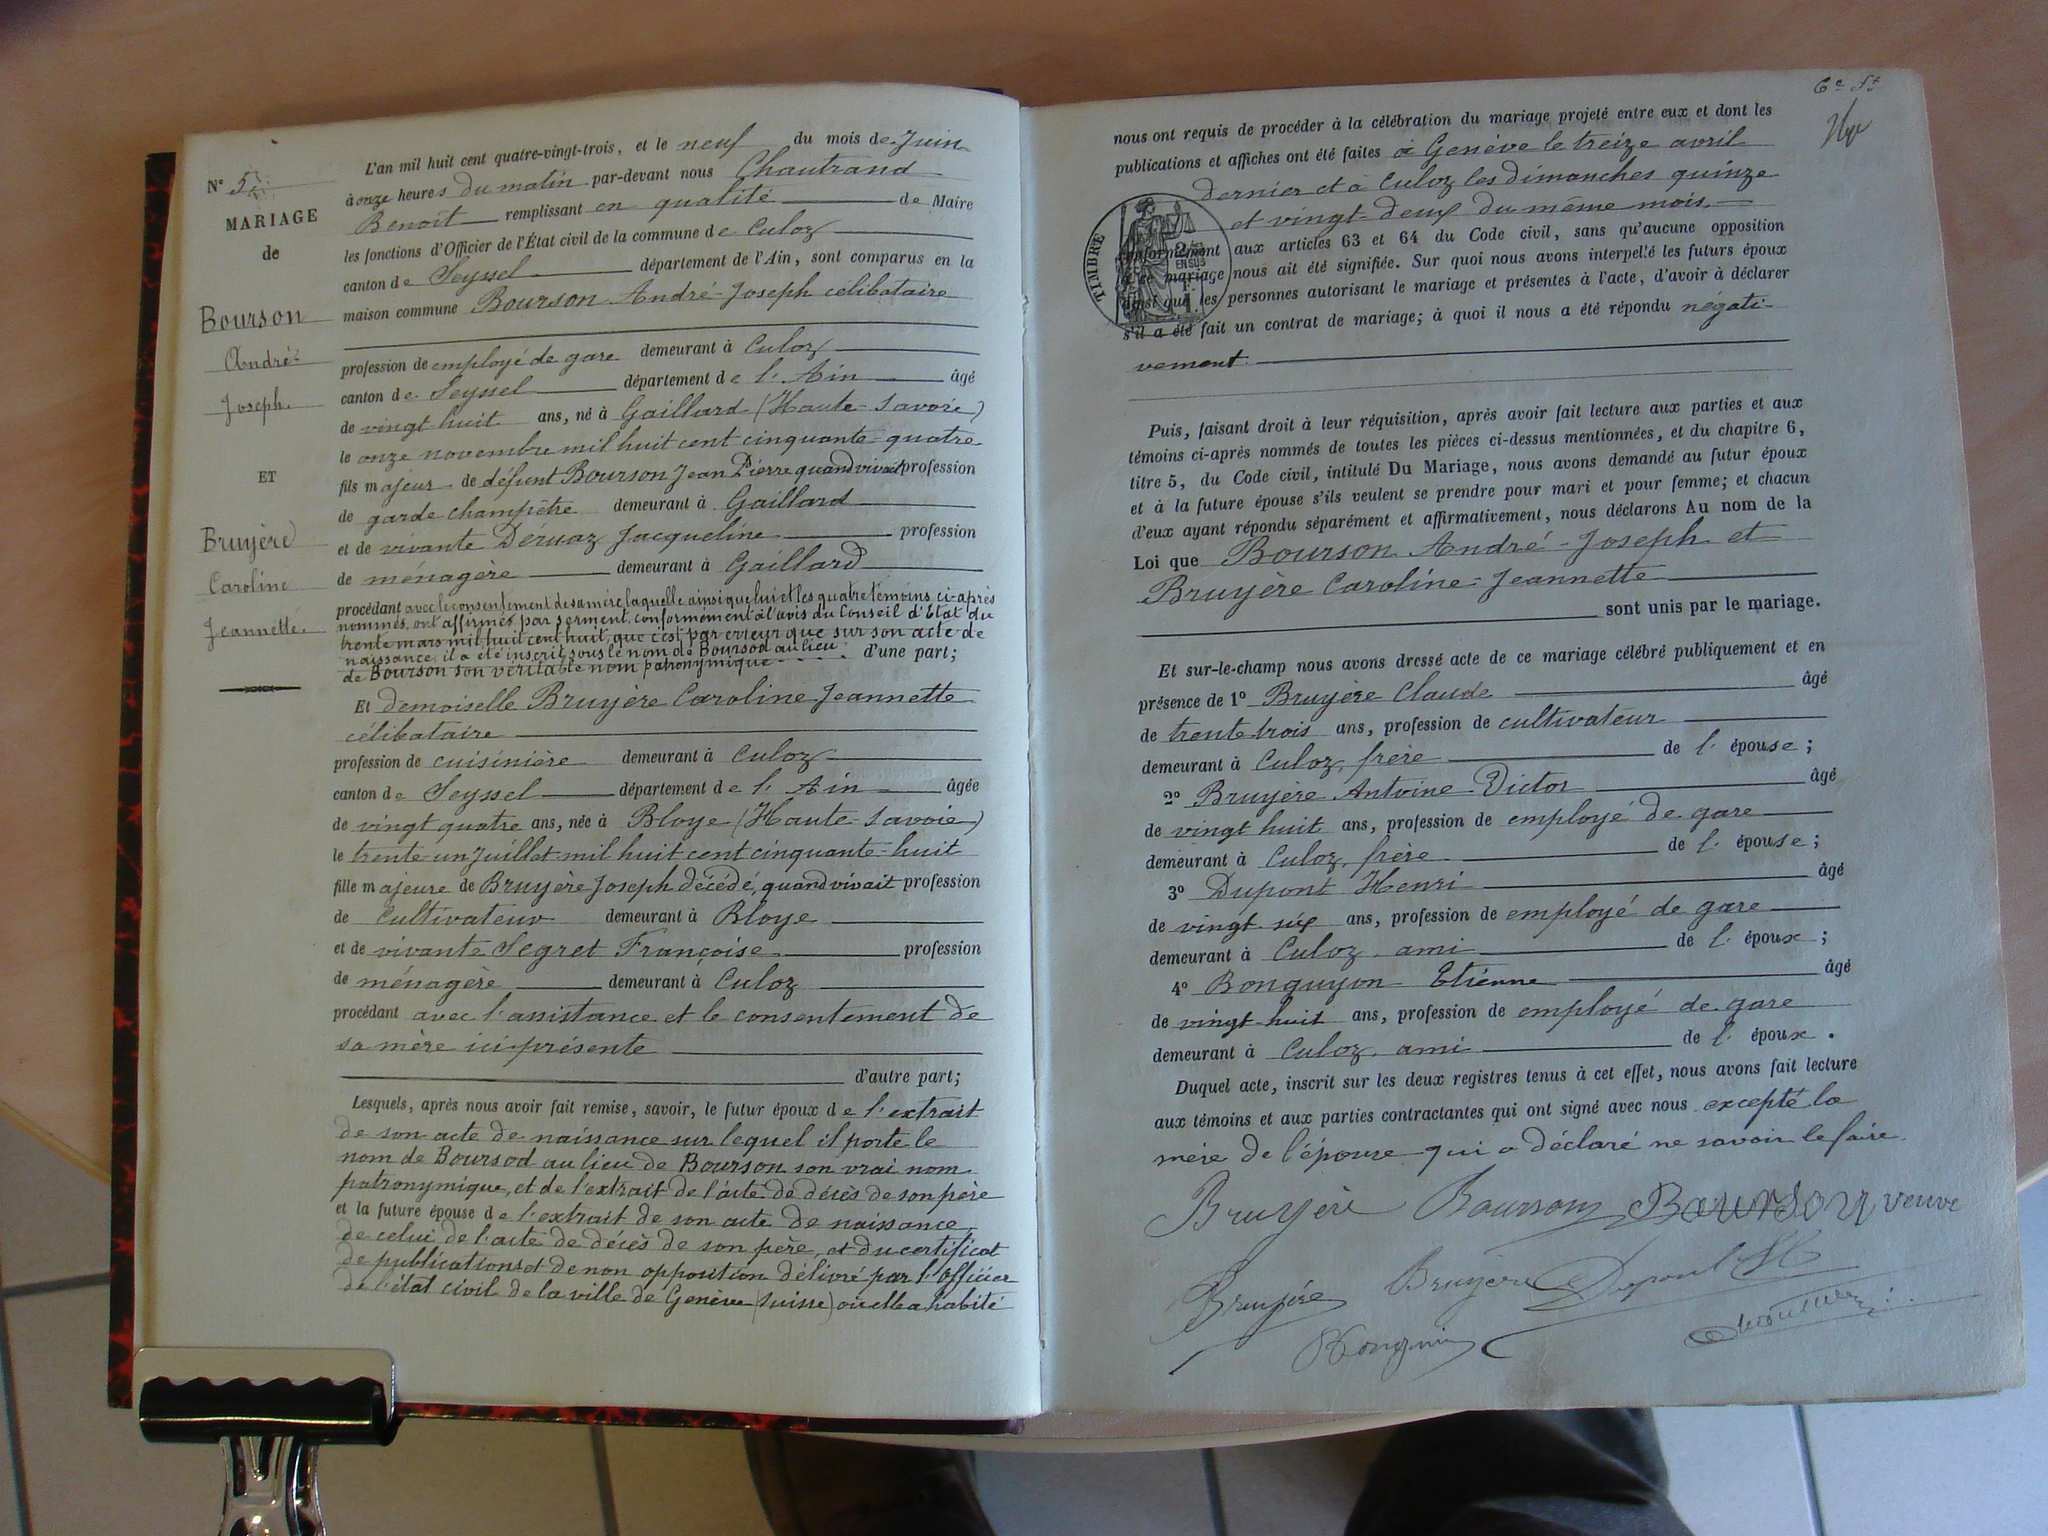 N° 5
MARIAGE
de
Bourson
André
Joseph
ET
Bruyère
Caroline
Jeannette
L'an mil huit cent quatre-vingt-trois, et le neuf du mois de Juin
à onze heures du matin par-devant nous Chautrand
Benoit remplissant en qualité de Maire
les fonctions d'Officier de l'État civil de la commune de Culoz
canton de Seyssel département de l'Ain, sont comparus en la
maison commune Bourson André-Joseph célibataire
profession de employé de gare demeurant à Culoz
canton de Seyssel département de l'Ain âgé
de vingt huit ans, né à Gaillard (Haute-Savoie)
le onze novembre mil huit cent cinquante-quatre
fils majeur de défunt Bourson Jean Pierre quand vivait profession
de garde champêtre demeurant à Gaillard
et de vivante Déruaz Jacqueline profession
de ménagère demeurant à Gaillard
procédant avec le consentement de sa mère laquelle ainsi que lui et les quatre témoins ci-après
nommés, ont affirmés par serment conformément à l'avis du Conseil d'Etat du
trente mars mil huit cent huit, que c'est par erreur que sur son acte de
naissance il a été inscrit sous le nom de Boursod au lieu
de Bourson son véritable nom patronymique d'une part;
Et demoiselle Bruyère Caroline Jeannette
célibataire
profession de cuisinière demeurant à Culoz
canton de Seyssel département de l'Ain âgée
de vingt quatre ans, née à Bloye (Haute-Savoie)
le trente un juillet mil huit cent cinquante-huit
fille majeure de Bruyère Joseph décédé, quand vivait profession
de cultivateur demeurant à Bloye
et de vivante Segret Françoise profession
de ménagère demeurant à Culoz
procédant avec l'assistance et le consentement de
sa mère ici présente
d'autre part;
Lesquels, après nous avoir fait remise, savoir, le futur époux de l'extrait
de son acte de naissance sur lequel il porte le
nom de Boursod au lieu de Bourson son vrai nom
patronymique, et de l'extrait de l'acte de décès de son père
et la future épouse de l'extrait de son acte de naissance,
de celui de l'acte de décès de son père, et du certificat
de publications et de non opposition délivré par l'officier
de l'état civil de la ville de Genève (Suisse) où elle a habité
6e Ft
nous ont requis de procéder à la célébration du mariage projeté entre eux et dont les
publications et affiches ont été faites à Genève le treize avril
dernier et à Culoz les dimanches quinze
et vingt-deux du même mois.
TIMBRE
conformément aux articles 63 et 64 du Code civil, sans qu'aucune opposition
à ce mariage nous ait été signifiée. Sur quoi nous avons interpellé les futurs époux
ainsi que les personnes autorisant le mariage et présentes à l'acte, d'avoir à déclarer
s'il a été fait un contrat de mariage; à quoi il nous a été répondu négati-
vement.
Puis, faisant droit à leur réquisition, après avoir fait lecture aux parties et aux
témoins ci-après nommés de toutes les pièces ci-dessus mentionnées, et du chapitre 6,
titre 5, du Code civil, intitulé Du Mariage, nous avons demandé au futur époux
et à la future épouse s'ils veulent se prendre pour mari et pour femme; et chacun
d'eux ayant répondu séparément et affirmativement, nous déclarons Au nom de la
Loi que Bourson André-Joseph et
Bruyère Caroline-Jeannette
sont unis par le mariage.
Et sur-le-champ nous avons dressé acte de ce mariage célébré publiquement et en
présence de 1° Bruyère Claude âgé
de trente trois ans, profession de cultivateur
demeurant à Culoz, frère de l'épouse;
2° Bruyère Antoine-Victor âgé
de vingt huit ans, profession de employé de gare
demeurant à Culoz, frère de l'épouse;
3° Dupont Henri âgé
de vingt six ans, profession de employé de gare
demeurant à Culoz, ami de l'époux;
4° Bonguyon Etienne âgé
de vingt-huit ans, profession de employé de gare
demeurant à Culoz, ami de l'époux.
Duquel acte, inscrit sur les deux registres tenus à cet effet, nous avons fait lecture
aux témoins et aux parties contractantes qui ont signé avec nous excepté la
mère de l'épouse qui a déclaré ne savoir le faire.
Bruyère Bourson Bourson veuve
Bruyère Bruyère Dupont H